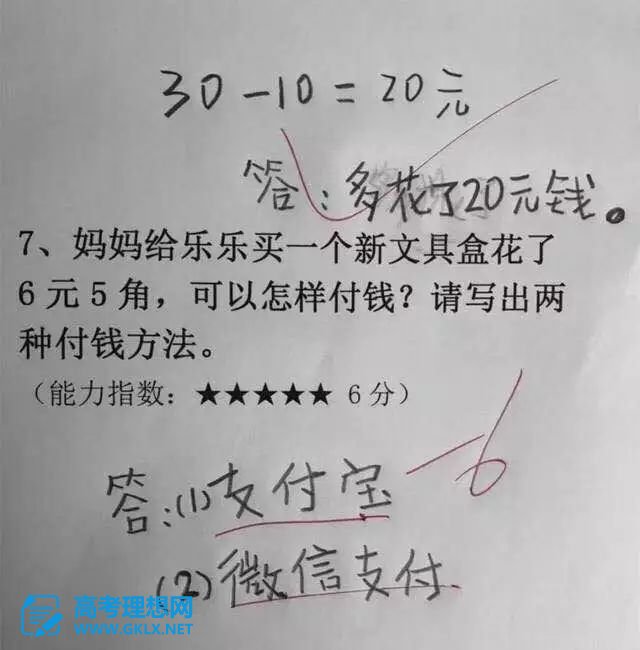 30-10=20元
答：多花了20元钱。
7、妈妈给乐乐买一个新文具盒花了
6元5角，可以怎样付钱？请写出两
种付钱方法。
（能力指数：★★★★★ 6分）
-6
答：(1)支付宝
(2)微信支付.
高考理想网
WWW.GKLX.NET